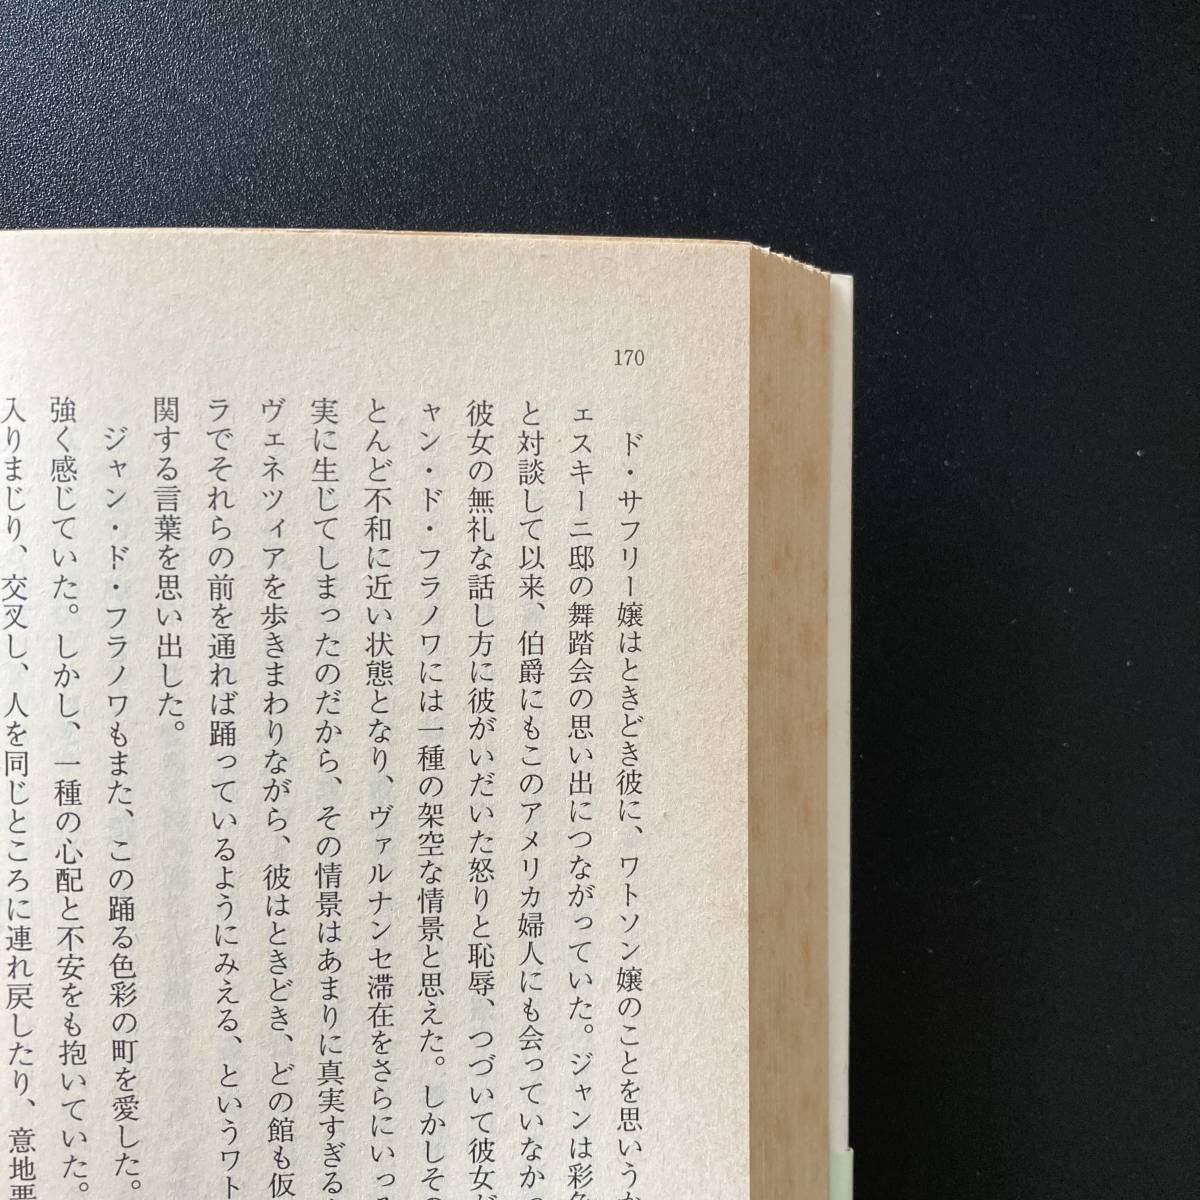 170
ド・サフリー嬢はときどき彼に、ワトソン嬢のことを思いうか
ェスキーニ邸の舞踏会の思い出につながっていた。ジャンは彩色
と対談して以来、伯爵にもこのアメリカ婦人にも会っていなかっ
彼女の無礼な話し方に彼がいだいた怒りと恥辱、つづいて彼女が
ャン・ド・フラノワには一種の架空な情景と思えた。しかしその
とんど不和に近い状態となり、ヴァルナンセ滞在をさらにいっそ
実に生じてしまったのだから、その情景はあまりに真実すぎる
ヴェネツィアを歩きまわりながら、彼はときどき、どの館も仮
ラでそれらの前を通れば踊っているようにみえる、というワト
関する言葉を思い出した。
ジャン・ド・フラノワもまた、この踊る色彩の町を愛した。
強く感じていた。しかし、一種の心配と不安をも抱いていた。
入りまじり、交叉し、人を同じところに連れ戻したり、意地悪